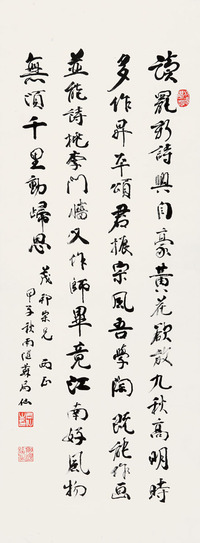 讀罷新詩興自豪黃花欲放九秋高明時
多作昇平頌君振宗風吾學陶既能作画
並能詩桃李門牆又作師畢竟江南好風物
無須千里動歸思
茂柳宗兄 两正
甲子秋南匯蘇局仙